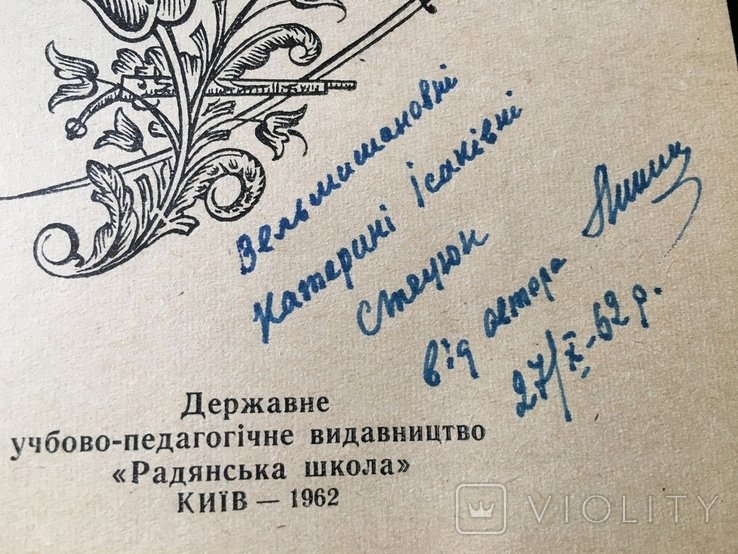 Вельмишановні
Катерині Ісаківні
Стецюк
від автора
27/X-62 р.
Державне
учбово-педагогічне видавництво
«Радянська школа»
КИЇВ — 1962
VIOLITY